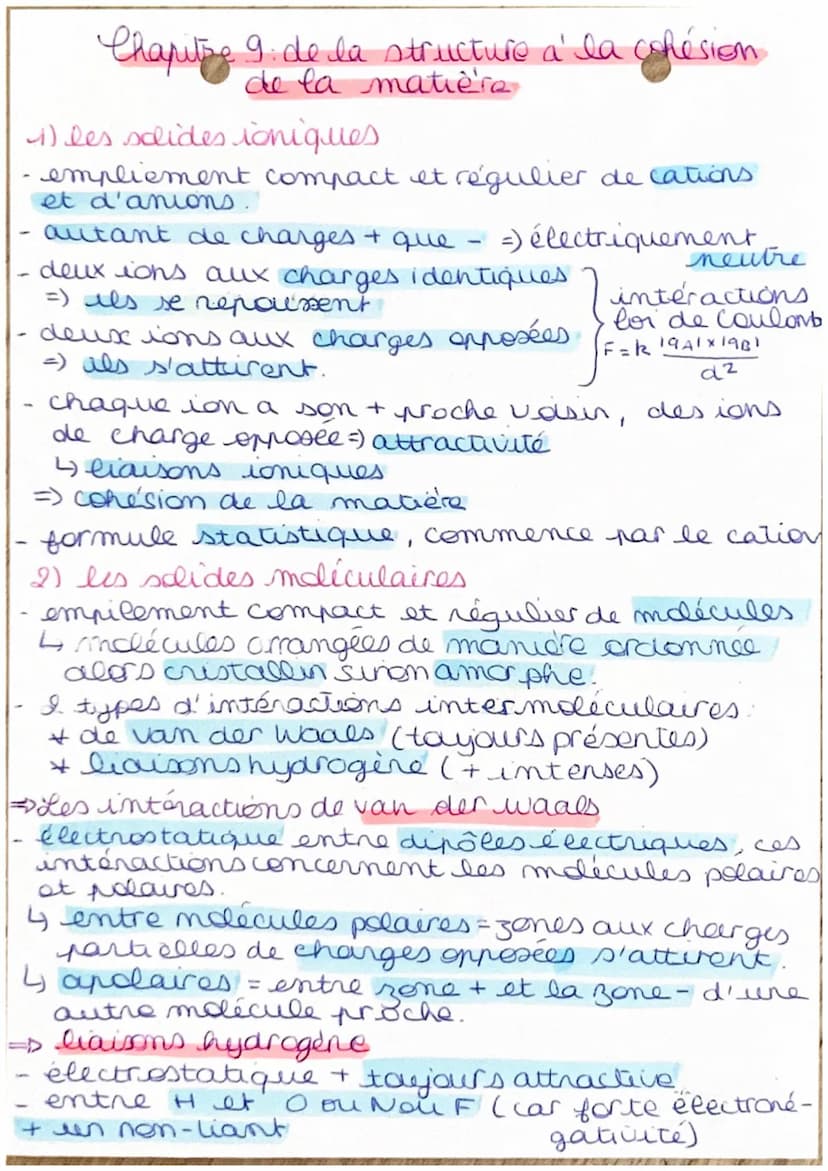 Chapitre 9: de la structure à la cohésion
de la matière
1) les solides ioniques
- empliement compact et régulier de cations
et d'anions.
- autant de charges + que - => électriquement
neutre
- deux ions aux charges identiques
=> ils se repoussent
- deux ions aux charges opposées
=> ils s'attirent.
intéractions
loi de Coulomb
F = k |qA| x |qB| / d²
- chaque ion a son + proche voisin, des ions
de charge opposée => attractivité
↳ liaisons ioniques
=> cohésion de la matière
- formule statistique, commence par le cation
2) les solides moléculaires
- empilement compact et régulier de molécules
↳ molécules arrangées de manière ordonnée
alors cristallin sinon amorphe.
- 2 types d'intéractions intermoléculaires:
* de van der Waals (toujours présentes)
* liaisons hydrogène (+ intenses)
=> Les intéractions de van der waals
- électrostatique entre dipôles électriques, ces
intéractions concernent les molécules polaires
et polaires.
↳ entre molécules polaires = zones aux charges
partielles de charges opposées s'attirent.
↳ apolaires = entre zone + et la zone - d'une
autre molécule proche.
=> liaisons hydrogène
- électrostatique + toujours attractive
- entre H et O ou N ou F (car forte électroné-
+ un non-liant gativité)